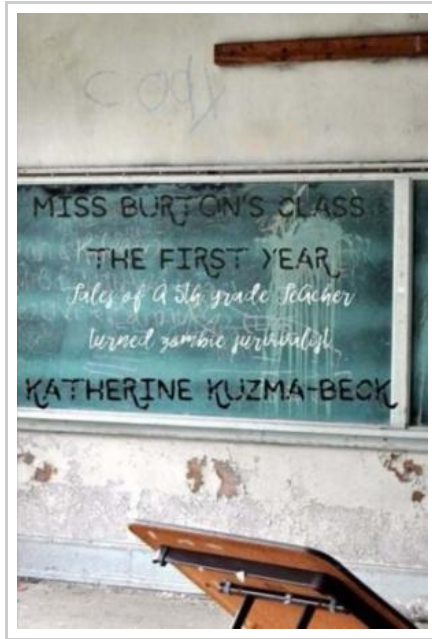 MISS BURTON'S CLASS
THE FIRST YEAR
Tales of a 5th grade teacher
turned zombie survivalist
KATHERINE KUZMA-BECK